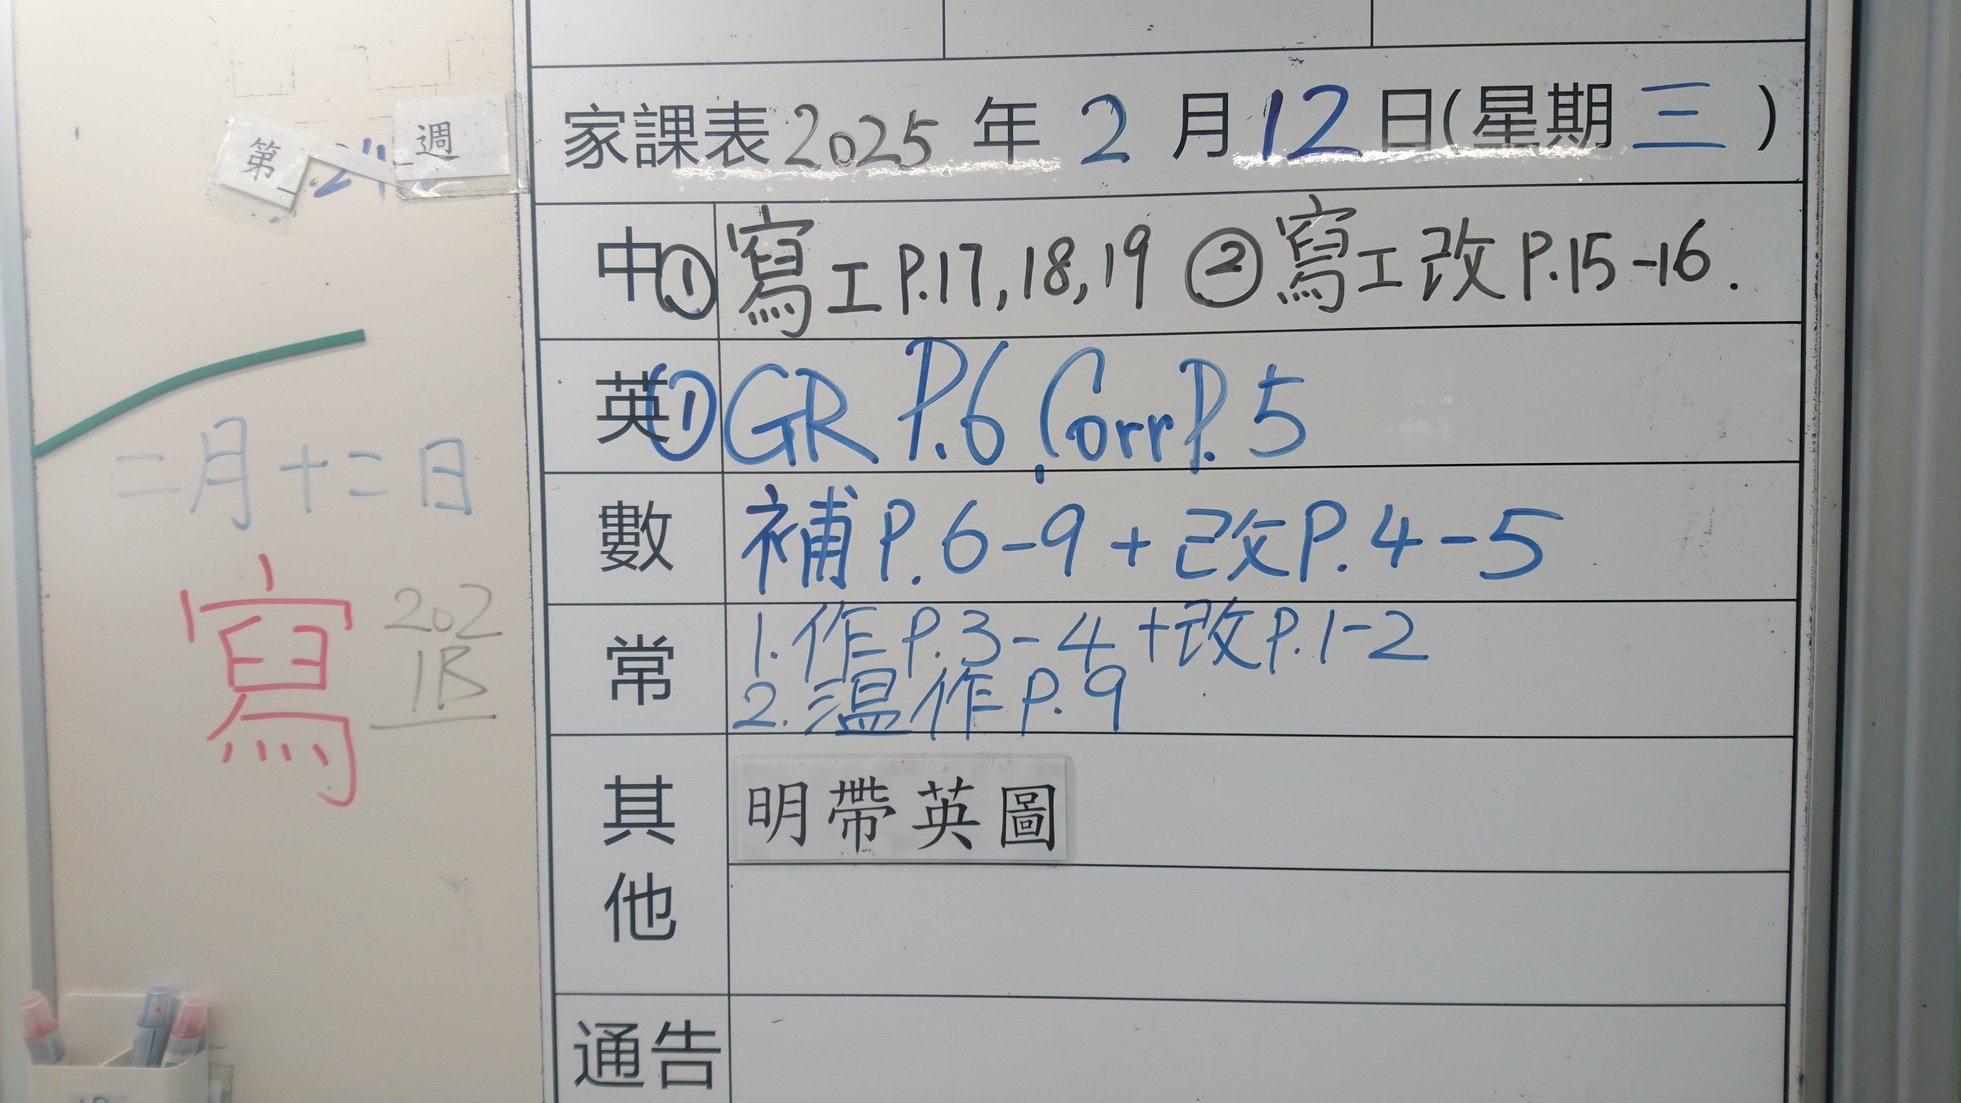 第 週
二月十二日
寫
202
1B
家課表 2025 年 2 月 12 日(星期 三 )
中 ① 寫工P.17,18,19 ② 寫工改 P.15-16.
英 ① GR P.6, Corr P.5
數 補P.6-9+改P.4-5
常 1.作P.3-4+改P.1-2
2.溫作P.9
其他 明帶英圖
通告